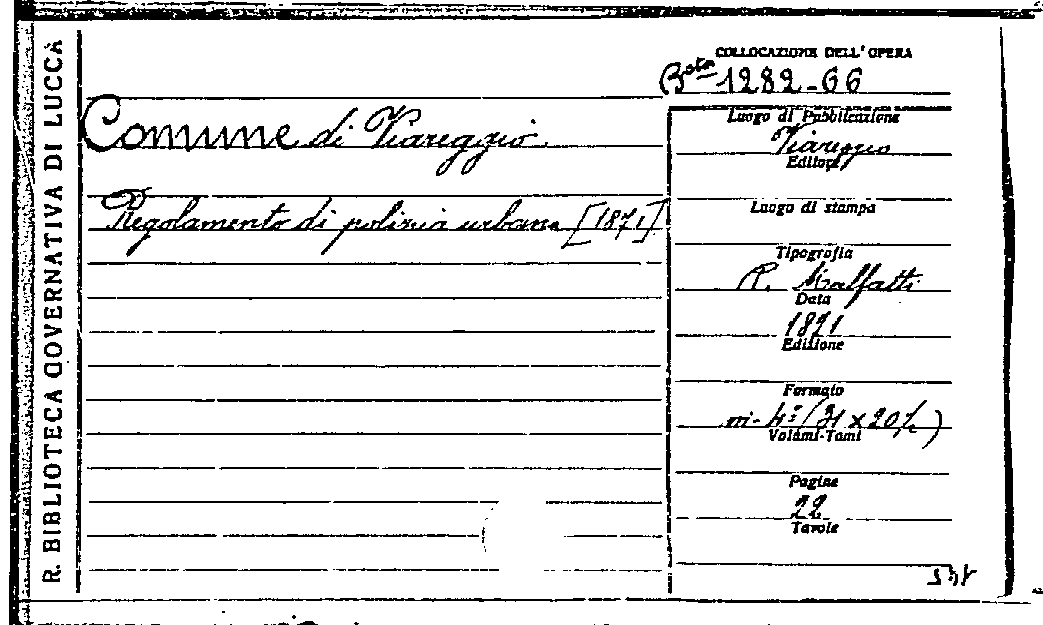 R. BIBLIOTECA GOVERNATIVA DI LUCCA
COLLOCAZIONE DELL'OPERA
Bsta 1282-66
Comune di Viareggio
Regolamento di polizia urbana [1871]
Luogo di Pubblicazione
Viareggio
Editore
Luogo di stampa
Tipografia
R. Malfatti
Data
1871
Edizione
Formato
in-4º (31 x 20½)
Volumi-Tomi
Pagine
22
Tavole